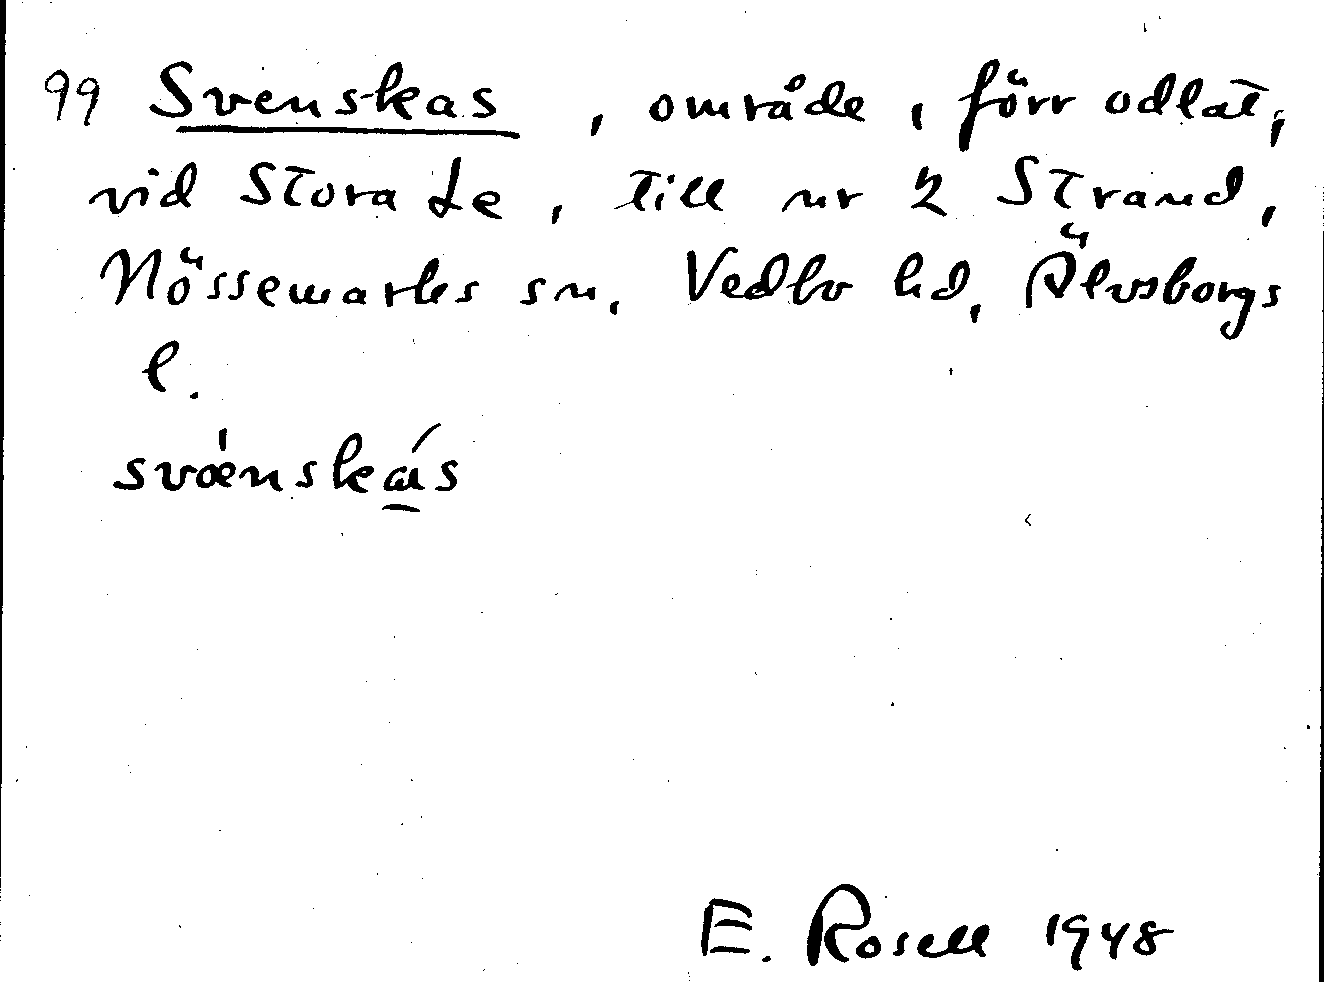 99 Svenskas, område, förr odlat,
vid Stora Le, till nr 2 Strand,
Nössemarks sn, Vedbo hd, Älvsborgs
l.
svǽnskás
E. Rosell 1948